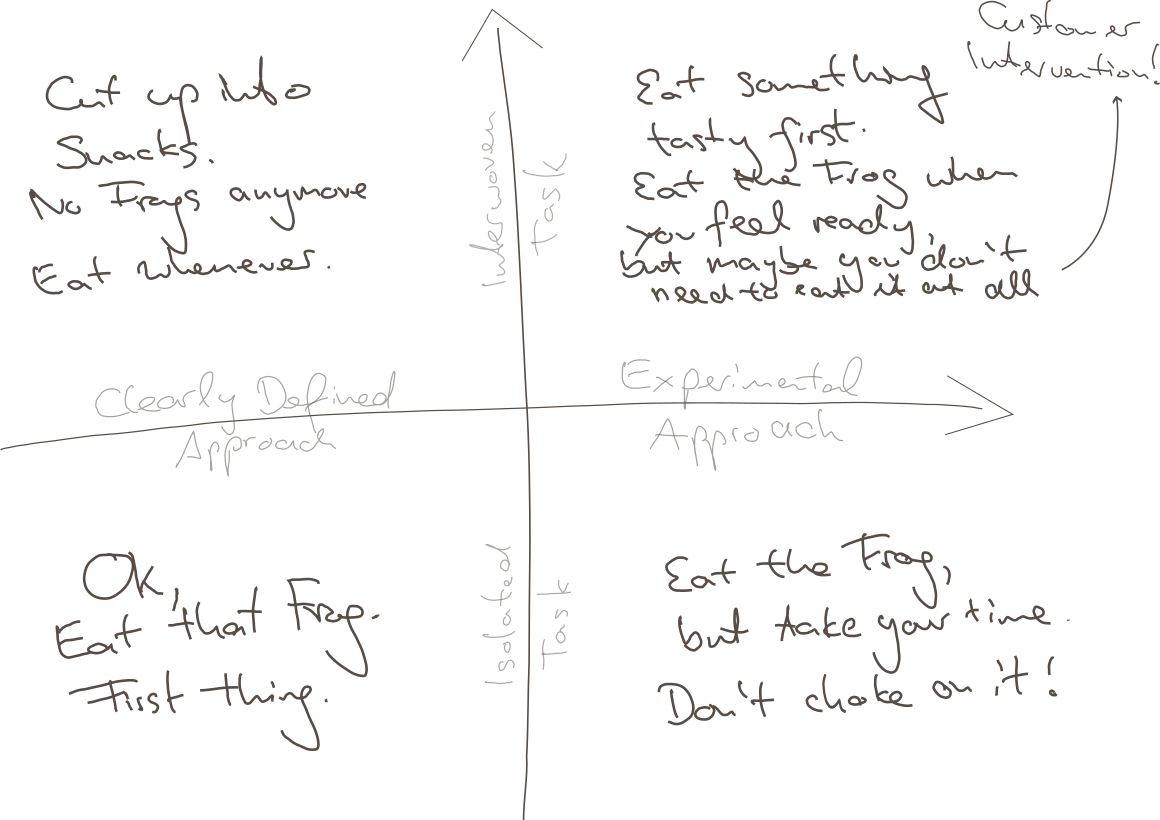 Customer
Intervention!
Cut up into
Snacks.
No Frogs anymore
Eat whenever.
Eat something
tasty first.
Eat the Frog when
you feel ready,
but maybe you don't
need to eat it at all
Interwoven
Task
Clearly Defined
Approach
Experimental
Approach
Ok,
Eat that Frog.
First thing.
Isolated
Task
Eat the Frog,
but take your time.
Don't choke on it!